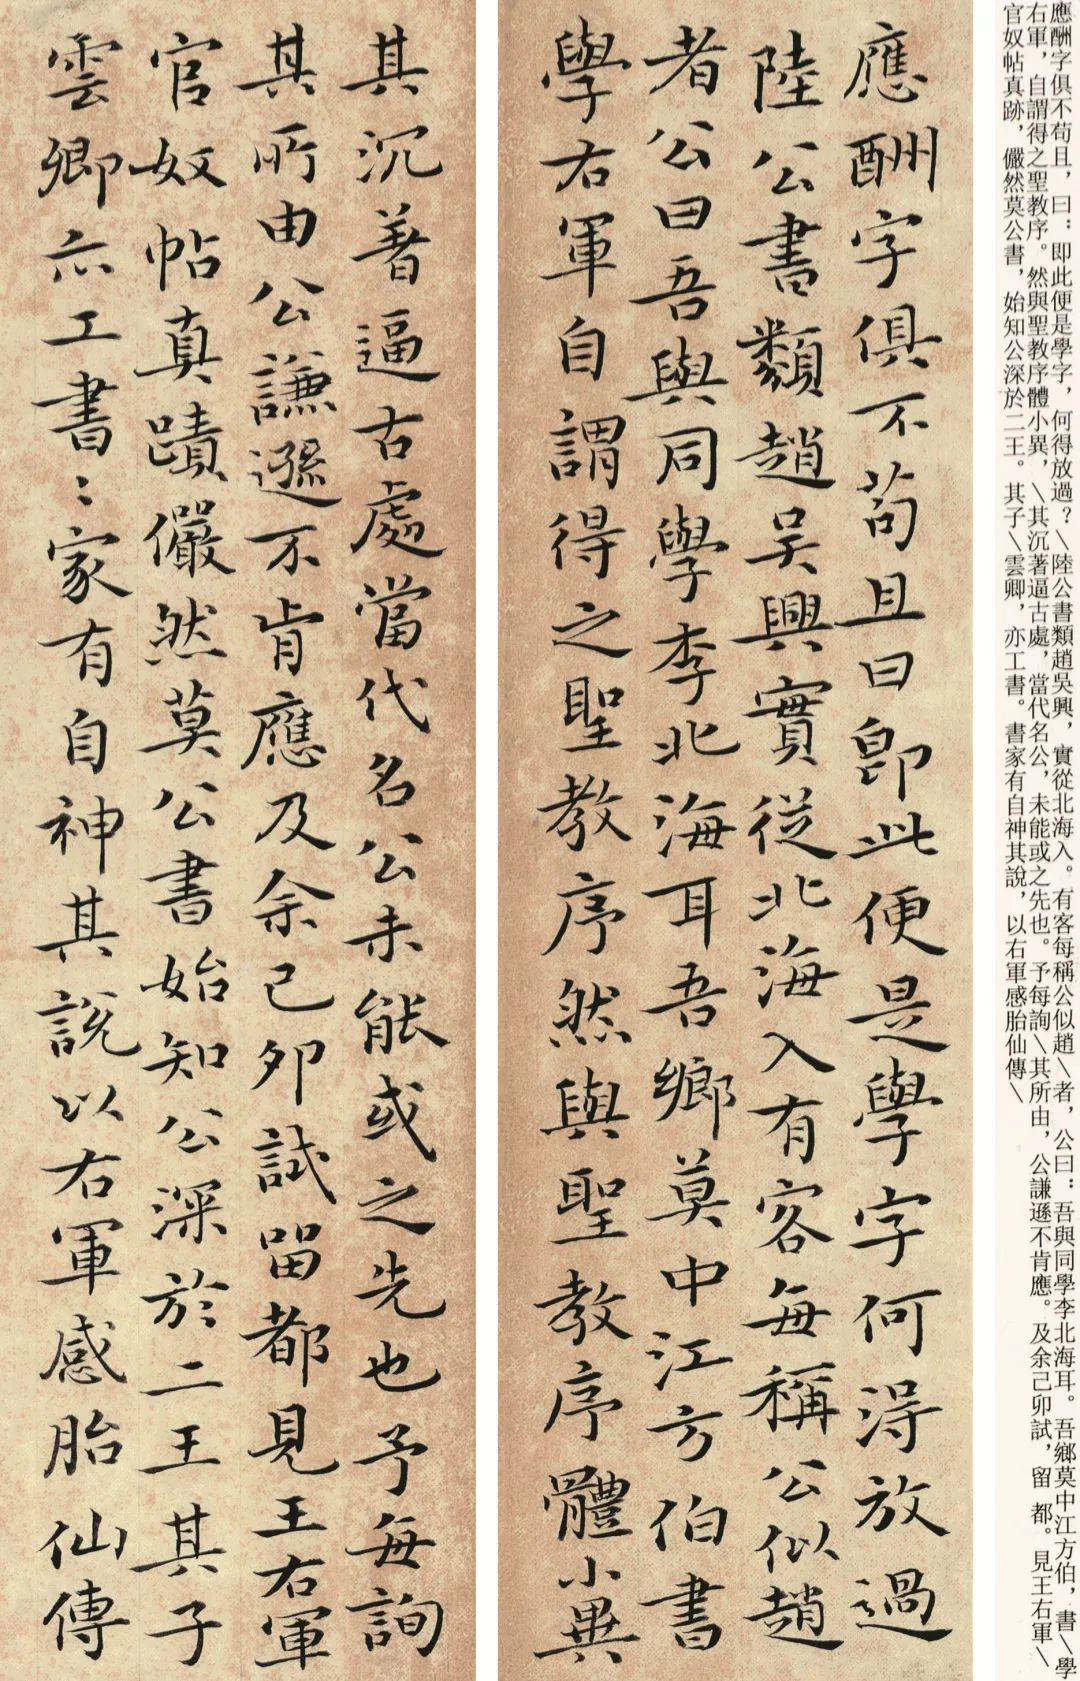 應酬字俱不苟且，曰：即此便是學字，何得放過？\陸公書類趙吳興，實從北海入。有客每稱公似趙\者，公曰：吾與同學李北海耳。吾鄉莫中江方伯，書\學
右軍，自謂得之聖教序。然與聖教序體小異，\其沉著逼古處，當代名公，未能或之先也。予每詢\其所由，公謙遜不肯應。及余己卯試，留 都。見王右軍\
官奴帖真跡，儼然莫公書，始知公深於二王。其子\雲卿，亦工書。書家有自神其說，以右軍感胎仙傳\
應酬字俱不苟且曰即此便是學字何得放過
陸公書類趙吳興實從北海入有客每稱公似趙
者公曰吾與同學李北海耳吾鄉莫中江方伯書
學右軍自謂得之聖教序然與聖教序體小異
其沉著逼古處當代名公未能或之先也予每詢
其所由公謙遜不肯應及余己卯試留都見王右軍
官奴帖真蹟儼然莫公書始知公深於二王其子
雲卿亦工書〻家有自神其說以右軍感胎仙傳